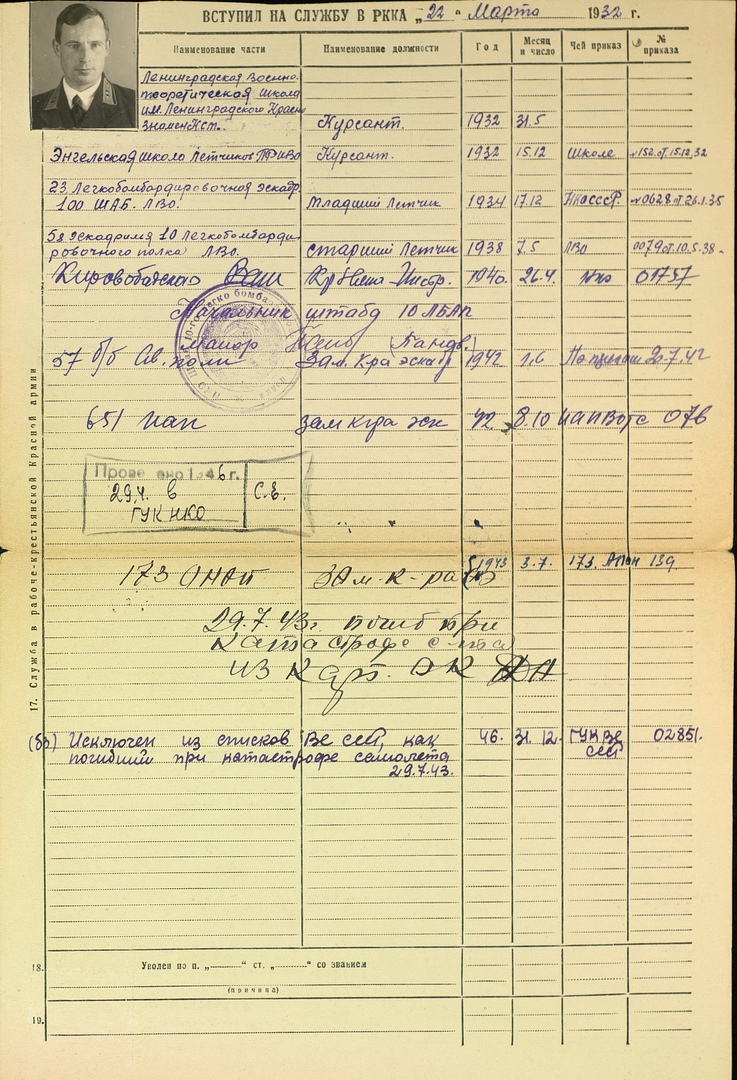 ВСТУПИЛ НА СЛУЖБУ В РККА „22“ Марта 1932 г.
Наименование части Наименование должности Год Месяц и число Чей приказ № приказа
Ленинградская Военно-
теоретическая школа
им. Ленинградского Красно
знамен Курсант. 1932 31.5
Энгельская школа Летчиков Курсант. 1932 15.12 школе №152 от 15.12.32
23 Легкобомбардировочная эскадр.
100 ШАБ. ЛВО. Младший Летчик 1934 17.12 НКО СССР. №0628 от 26.1.35
58 эскадрилия 10 Легкобомбарди
ровочного полка ЛВО. старший Летчик 1938 7.5 ЛВО 0079 от 10.5.38
Кировобадская Инстр. 1940. 26.4. НКО 01757
Начальник штаба 10 ЛБАП
Майор
57 б/б Ав. полк Зам. Кра эскад 1942 1.6 7.42
651 иап зам кра эск 42 8.10 076
Прове ено 1946 г.
29.4. в С.Е.
ГУК НКО
" "
173 ОНАП Зам. к-ра 1943 3.7. 173. 139
29.7.43г. погиб при
катастрофе с-та
из карт. ОК
Исключен из списков ВС ССР, как 46. 31.12. ГУК ВС 02851.
погибший при катастрофе самолета ССР
29.7.43.
17. Служба в рабоче-крестьянской Красной армии
18. Уволен по п. „ “ ст. „ “ со званием
(причина)
19.